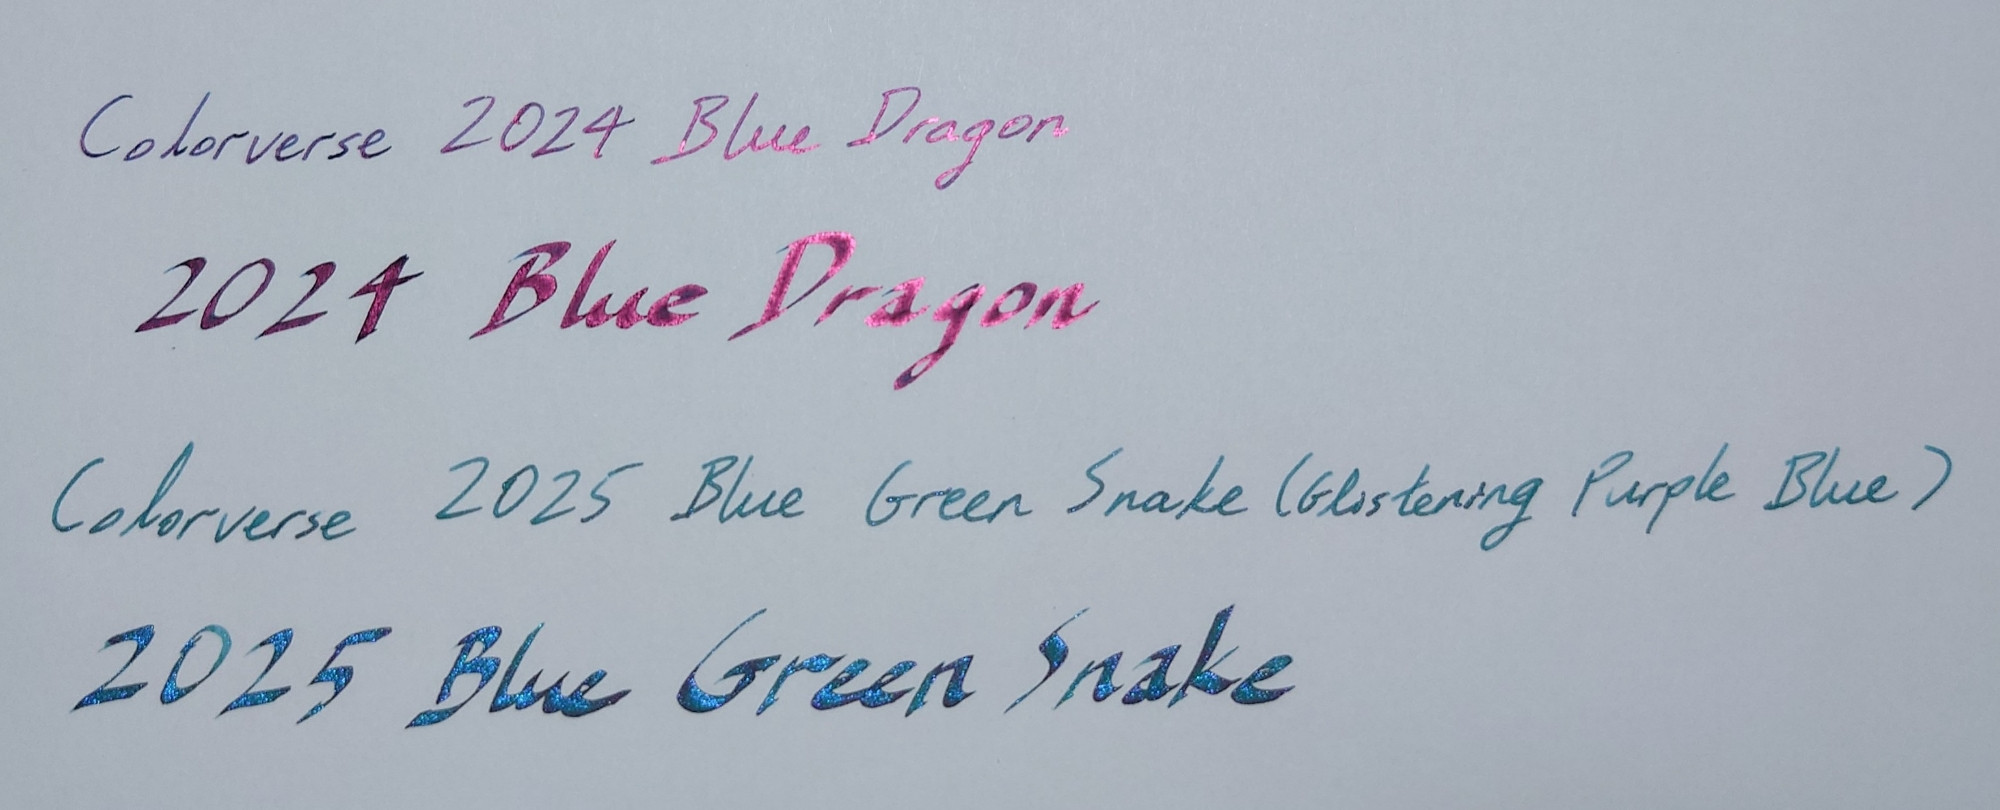 Colorverse 2024 Blue Dragon
2024 Blue Dragon
Colorverse 2025 Blue Green Snake (Glistening Purple Blue)
2025 Blue Green Snake